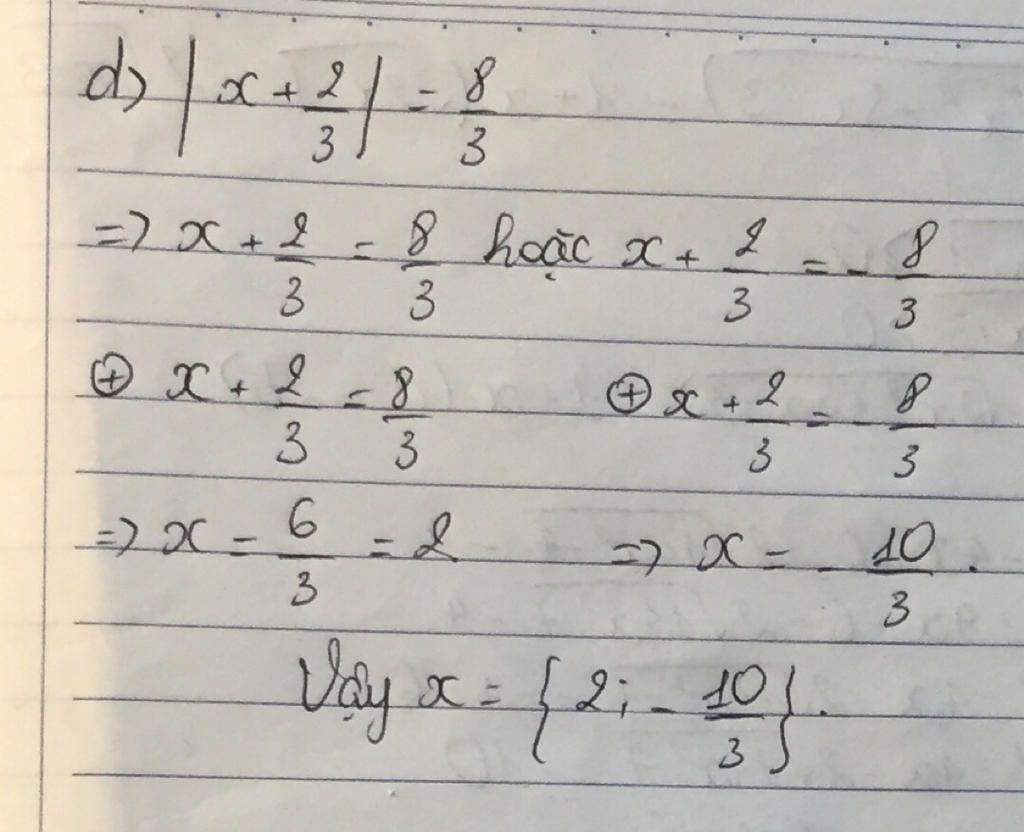 d) |x + 2/3| = 8/3
=> x + 2/3 = 8/3 hoặc x + 2/3 = - 8/3
⊕ x + 2/3 = 8/3 ⊕ x + 2/3 = - 8/3
=> x = 6/3 = 2 => x = - 10/3.
Vậy x = {2; - 10/3}.